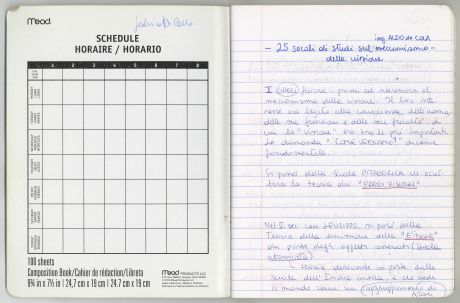 Mead
SCHEDULE
HORAIRE / HORARIO
1 2 3 4 5 6 7 8
100 sheets
Composition Book/Cahier de rédaction/Libreta
9¾ in x 7½ in | 24,7 cm x 19 cm | 24.7 cm x 19 cm
Mead PRODUCTS LLC
ing. ALDO de COLA
- 25 secoli di studi sul meccanismo -
della visione
I GRECI furono i primi ad interessarsi al
meccanismo della visione. Il loro inte
resse era legato alla conoscenza dell'uomo
delle sue funzioni e delle sue facoltà, di
cui la "visione" era tra le più importanti
La domanda "COME VEDIAMO?" divenne
fondamentale.
Si pensò dalla Scuola PITAGORICA di
la teoria dei "RAGGI VISUALI"
Nel I sec con LEUCIPPO, si parlò della
Teoria della emissione delle "EIDOLA"
da parte degli oggetti osservati (scuola
atomista)
- Teoria derivante in parte dalle
Scuole dell'India antica, e che vede
il mondo come un (aggruppamento di